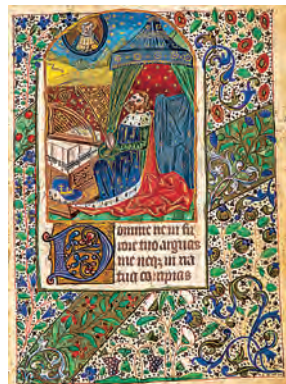 Domine ne in fu
rore tuo arguas
me neqꝫ in ira
tua corripias